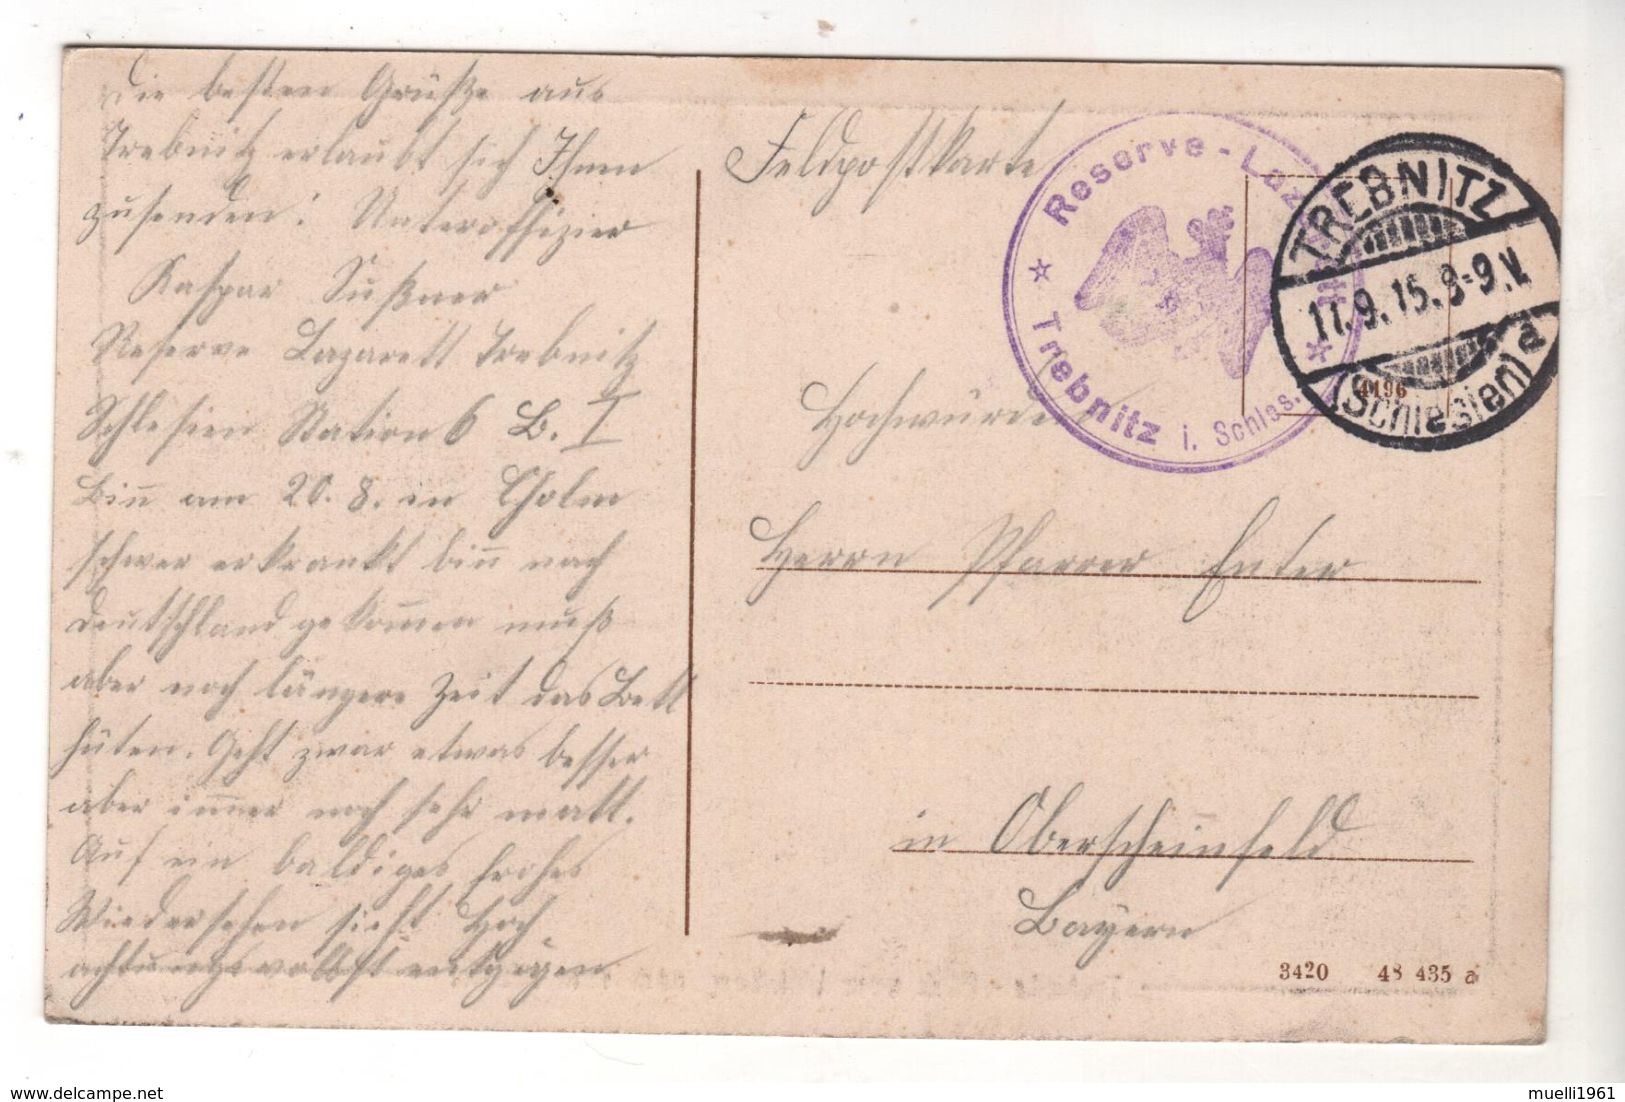 Die besten Grüße aus
Trebnitz erlaubt sich Ihnen
zusenden: Unteroffizier
Kaspar Süßner
Reserve Lazarett Trebnitz
Schlesien Station 6 B. I
Bin̄ am 20. 8. in Cholm
schwer erkrankt bin̄ nach
Deutschland gekom̄en muß
aber noch längere Zeit das Bett
hüten. Geht zwar etwas besser
aber im̄er noch sehr matt.
Auf ein baldiges frohes
Wiedersehen sieht Hoch
achtungsvollst entgegen
Feldpostkarte
Reserve - Laz
Trebnitz i. Schles.
TREBNITZ
17.9.15.8-9.V.
(Schlesien) a
4196
Hochwürden
Herrn Pfarrer Enter
in Oberschein̄feld
Bayern
3420 48 435 a
delcampe.net
muelli1961